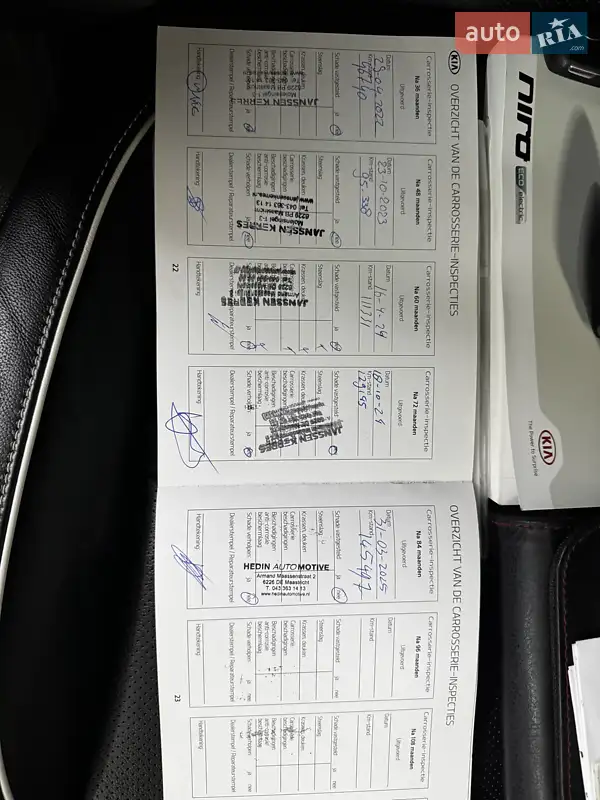 auto RIA.com
niro
ECO electric
KIA
The Power to Surprise
KIA OVERZICHT VAN DE CARROSSERIE-INSPECTIES
Carrosserie-inspectie
Na 36 maanden
Uitgevoerd
Datum
Km-stand
Schade vastgesteld ja
Steenslag
Krassen, deuken
Carrosserie
beschadigingen
Beschadigingen
anti-corrosie
beschermlaag
Schade verholpen ja
Dealerstempel / Reparateurstempel
JANSSEN KERRES
Handtekening
Carrosserie-inspectie
Na 48 maanden
Uitgevoerd
Datum 23-10-2023
Km-stand 95.338
Schade vastgesteld ja nee
Steenslag
Krassen, deuken
Carrosserie
beschadigingen
Beschadigingen
anti-corrosie
beschermlaag
Schade verholpen ja nee
Dealerstempel / Reparateurstempel
JANSSEN KERRES
Molensingel 1-2
6229 PB Maastricht
Tel. 043-363 14 13
Handtekening
Carrosserie-inspectie
Na 60 maanden
Uitgevoerd
Datum 16-4-24
Km-stand 111331
Schade vastgesteld ja
Steenslag
Krassen, deuken
Carrosserie
beschadigingen
Beschadigingen
anti-corrosie
beschermlaag
Schade verholpen ja
Dealerstempel / Reparateurstempel
JANSSEN KERRES
Handtekening
Carrosserie-inspectie
Na 72 maanden
Uitgevoerd
Datum 18-10-24
Km-stand 129195
Schade vastgesteld ja
Steenslag
Krassen, deuken
Carrosserie
beschadigingen
Beschadigingen
anti-corrosie
beschermlaag
Schade verholpen ja
Dealerstempel / Reparateurstempel
JANSSEN KERRES
Handtekening
22
OVERZICHT VAN DE CARROSSERIE-INSPECTIES
Carrosserie-inspectie
Na 84 maanden
Uitgevoerd
Datum 31-03-2025
Km-stand 145497
Schade vastgesteld ja nee
Steenslag
Krassen, deuken
Carrosserie
beschadigingen
Beschadigingen
anti-corrosie
beschermlaag
Schade verholpen ja nee
Dealerstempel / Reparateurstempel
HEDIN AUTOMOTIVE
Armand Maessenstraat 2
6226 DE Maastricht
T. 043 363 14 13
www.hedinautomotive.nl
Handtekening
Carrosserie-inspectie
Na 96 maanden
Uitgevoerd
Datum
Km-stand
Schade vastgesteld ja nee
Steenslag
Krassen, deuken
Carrosserie
beschadigingen
Beschadigingen
anti-corrosie
beschermlaag
Schade verholpen ja nee
Dealerstempel / Reparateurstempel
Handtekening
Carrosserie-inspectie
Na 108 maanden
Uitgevoerd
Datum
Km-stand
Schade vastgesteld ja nee
Steenslag
Krassen, deuken
Carrosserie
beschadigingen
Beschadigingen
anti-corrosie
beschermlaag
Schade verholpen ja nee
Dealerstempel / Reparateurstempel
Handtekening
23